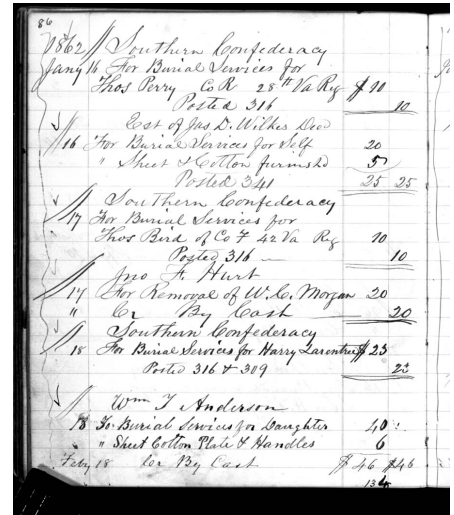 86
1862 // Southern Confederacy
Jany 16 For Burial Services for
Thos Perry Co R 28th Va Reg $ 10
Posted 316 10
Est of Jas D. Wilkes Decd
16 For Burial Services for Self 20
" Sheet & Cotton furnishd 5
Posted 341 25 25
Southern Confederacy
17 For Burial Services for
Thos Bird of Co F 42 Va Reg 10
Posted 316 — 10
Jno F. Hurt
17 For Removal of W. C. Morgan 20
" Cr By Cash 20
Southern Confederacy
18 For Burial Services for Harry $ 23
Posted 316 & 309 23
Wm T Anderson
18 To Burial Services for Daughter 40
" Sheet Cotton Plate & Handles 6
Feby 18 Cr By Cash $ 46 $46